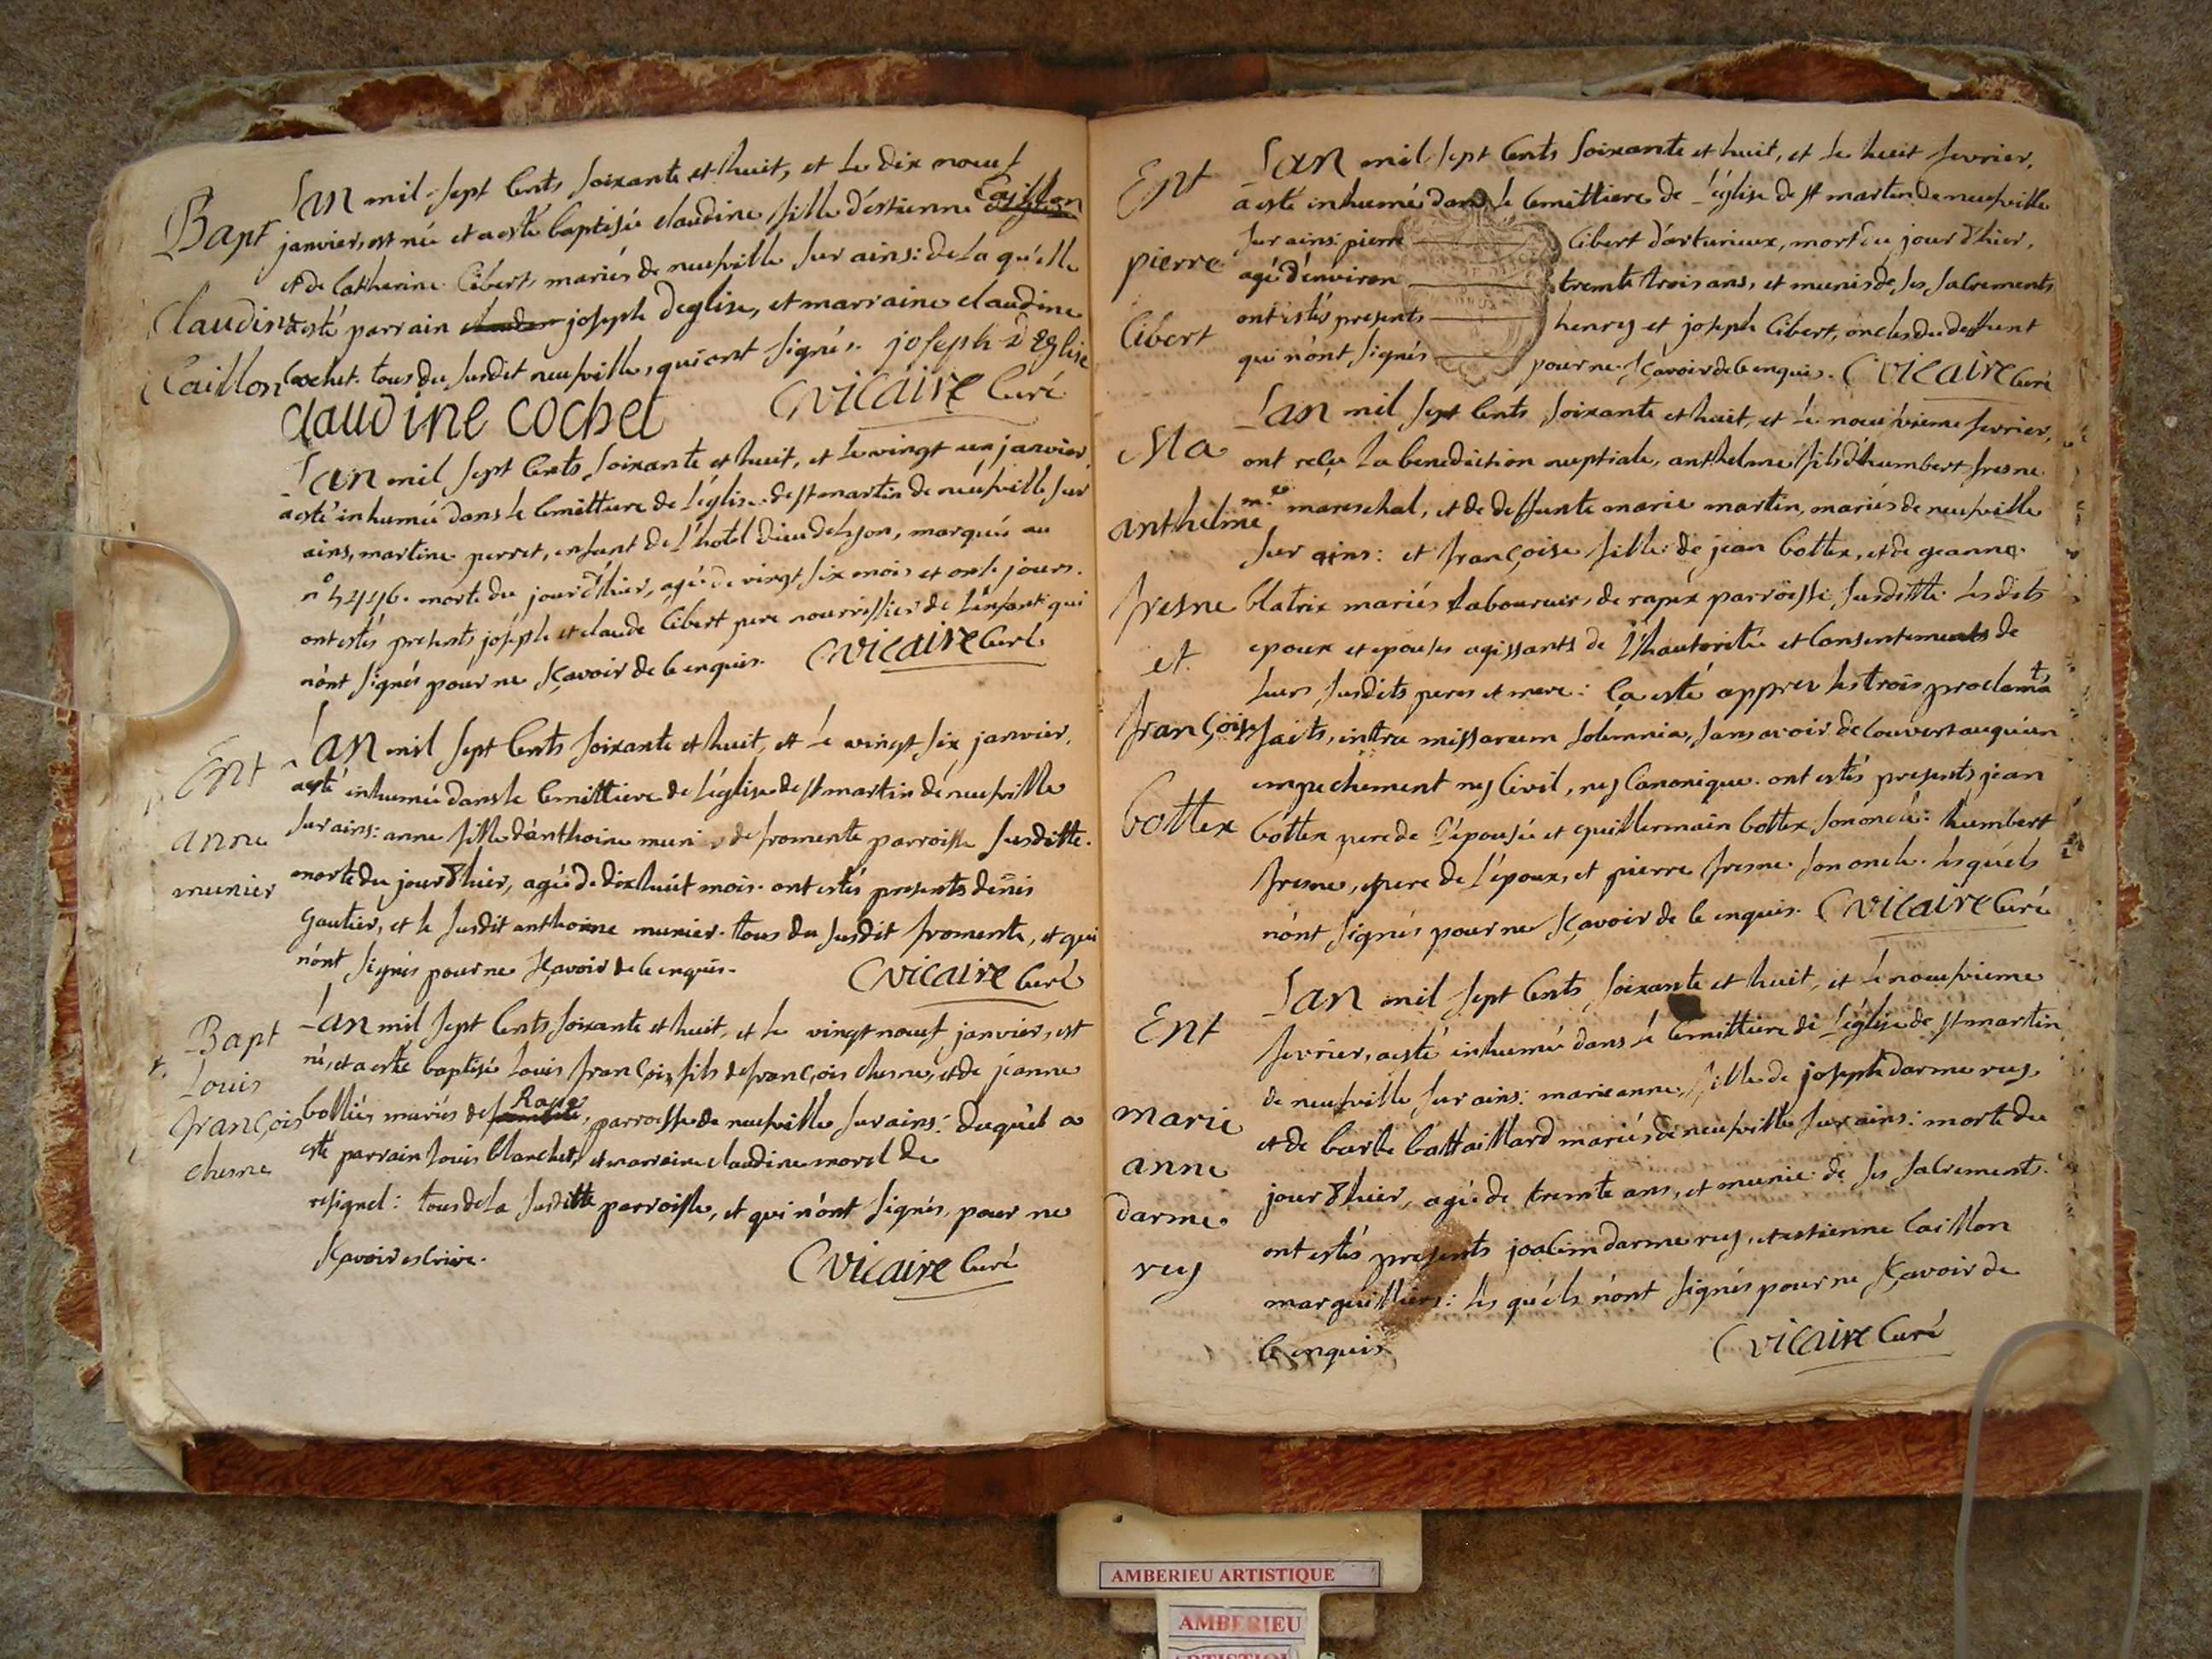 Bapt
Claudine
Caillon
Lan mil sept Cents soixante et huit, et le dix noeuf
janvier, est née et a esté baptisée claudine fille d'éstienne Caillon
et de Catherine Cibert, mariés de neufville sur ains: de la qu'elle
a esté parrain joseph deglise, et marraine claudine
Cochet. tous du susdit neufville, qui ont signés. joseph D Eglise
claudine cochet CVICAIRE Curé
Lan mil sept Cents soixante et huit, et le vingt un janvier
a esté inhumée dans le Cemittiere de l'église de st martin de neufville sur
ains, martine perret, enfant de l'hotel dieu de Lyon, marquée au
morte du jour d'hier, agée de vingt six mois et onse jours.
ont estés presents joseph et claude Cibert pere nourrissier de l'enfant qui
n'ont signés pour ne sçavoir de ce enquis. CVICAIRE Curé
Ent
anne
munier
Lan mil sept Cents soixante et huit, et le vingt six janvier,
a esté inhumée dans le Cemittiere de l'église de st martin de neufville
sur ains: anne fille d'anthoine muni de fromente parroisse susditte.
morte du jour d'hier, agée de dix huit mois. ont estés presents denis
Gautier, et le susdit anthoine munier. tous du susdit fromente, et qui
n'ont signés pour ne sçavoir de ce enquis. CVICAIRE Curé
Bapt
Louis
françois
chesne
Lan mil sept Cents soixante et huit, et le vingt noeuf janvier, est
né, et a esté baptisé Louis françois, fils de françois chesne, et de jeanne
mariés de parroisse de neufville sur ains: duquel a
esté parrain Louis blanchet, et marraine claudine morel de
resignel: tous de la susditte parroisse, et qui n'ont signés, pour ne
sçavoir escrire. CVICAIRE Curé
Ent
pierre
Cibert
Lan mil sept Cents soixante et huit, et le huit fevrier,
a esté inhumé dans le Cemittiere de l'église de st martin de neufville
sur ains: pierre Cibert d'arturieux, mort du jour d'hier,
agé d'environ trente trois ans, et munis de ses sacrements
ont estés presents henry et joseph Cibert, oncles du deffunt
qui n'ont signés pour ne sçavoir de ce enquis. CVICAIRE Curé
Ma
anthelme
fresne
et
françoise
bottex
Lan mil sept Cents soixante et huit, et le noeufvieme fevrier,
ont reçu la benediction nuptiale, anthelme fils d'humbert fresne
mareschal, et de deffunte marie martin, mariés de neufville
sur ains: et françoise fille de jean bottex, et de jeanne
blatrix mariés Laboureurs, de rapéx parroisse susditte. Les dits
epoux et epouses agissants de l'hautorité et Consentements de
leurs susdits peres et mere: Ca esté appres les trois proclamãt
faits, inttra missarum solemnia, sans avoir decouvert auquun
empechement ny Civil, ny Canonique. ont estés presents jean
bottex pere de l'épousée et guillermain bottex son oncle: humbert
fresne, pere de l'époux, et pierre fresne son oncle. les quéls
n'ont signés pour ne sçavoir de ce enquis. CVICAIRE Curé
Ent
marie
anne
darme
rey
Lan mil sept Cents soixante et huit, et le noeufvieme
fevrier, a esté inhumée dans le Cemittiere de l'église de st martin
de neufville sur ains: marieanne, fille de joseph darmerey
et de barbe battaillard mariés de neufville sur ains: morte du
jour d'hier, agée de trente ans, et munie de ses sacrements.
ont estés presents joacim darmerey, et estienne Caillon
marguilliers: les quéls n'ont signés pour ne sçavoir de
ce enquis CVICAIRE Curé
AMBERIEU ARTISTIQUE
AMBERIEU
ARTISTIQUE